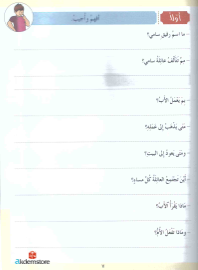 أولا
أفهم وأجيب:
- ما اسم رفيق سامي؟
- مم تتألف عائلة سامي؟
- بم يعمل الأب؟
- متى يذهب إلى عمله؟
- ومتى يعود إلى البيت؟
- أين تجتمع العائلة كل مساء؟
- ماذا يقرأ الأب؟
- وماذا تفعل الأم؟
akdemstore